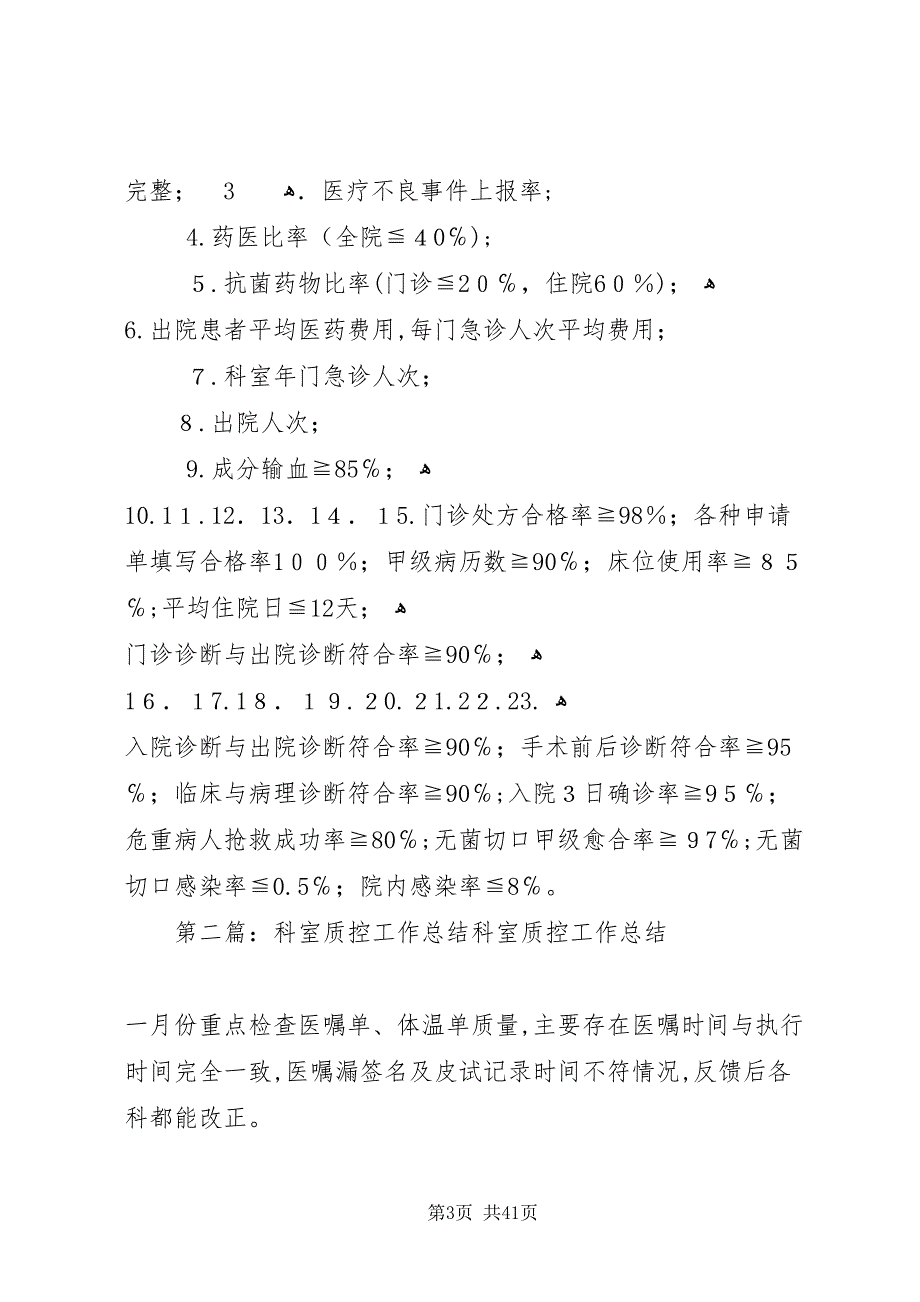 完整； 3 ﻫ．医疗不良事件上报率;
4.药医比率（全院≦４0℅);
５.抗菌药物比率(门诊≦2０℅，住院6０％)； ﻫ
6.出院患者平均医药费用,每门急诊人次平均费用；
７.科室年门急诊人次；
８.出院人次；
9.成分输血≧85℅； ﻫ
10.1１.12．13．1４．１5.门诊处方合格率≧98％；各种申请
单填写合格率1００％；甲级病历数≧90℅；床位使用率≧８５
℅;平均住院日≦12天； ﻫ
门诊诊断与出院诊断符合率≧90℅； ﻫ
1６．１7.1８．１９.２0.２1.2２.23. ﻫ
入院诊断与出院诊断符合率≧90℅；手术前后诊断符合率≧95
℅；临床与病理诊断符合率≧90℅;入院３日确诊率≧９５℅；
危重病人抢救成功率≧80℅;无菌切口甲级愈合率≧９7℅;无菌
切口感染率≦0.5℅；院内感染率≦8℅。
第二篇：科室质控工作总结科室质控工作总结
一月份重点检查医嘱单、体温单质量,主要存在医嘱时间与执行
时间完全一致,医嘱漏签名及皮试记录时间不符情况,反馈后各
科都能改正。
第3页 共41页